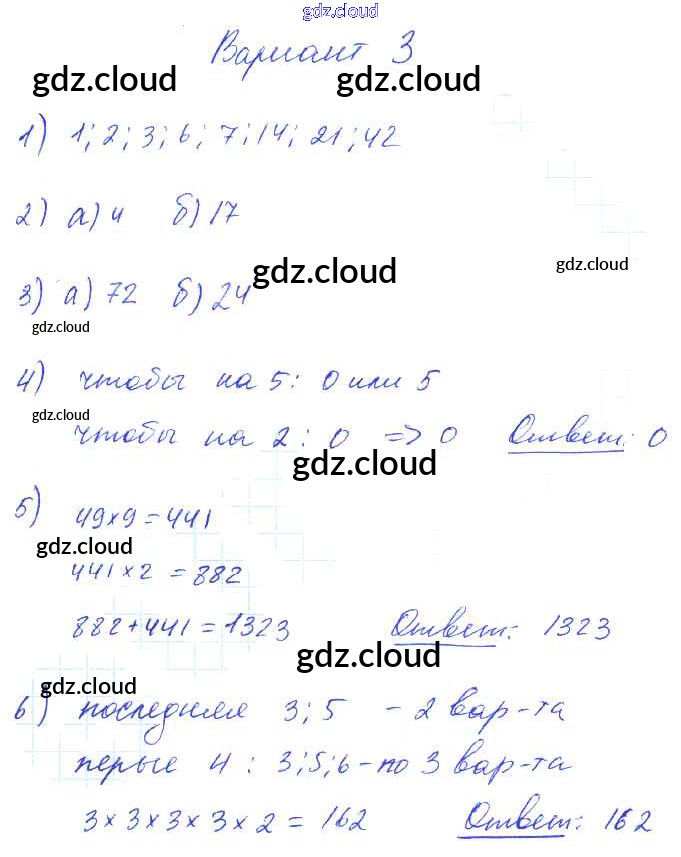 gdz.cloud
Вариант 3
gdz.cloud gdz.cloud
1) 1; 2; 3; 6; 7; 14; 21; 42
2) а) 4 б) 17
gdz.cloud
gdz.cloud
3) а) 72 б) 24
gdz.cloud
4) чтобы на 5: 0 или 5
gdz.cloud
чтобы на 2: 0 => 0 Ответ: 0
gdz.cloud
5) 49×9=441
gdz.cloud
441×2 = 882
882+441=1323 Ответ: 1323
gdz.cloud
gdz.cloud
6) последняя 3; 5 - 2 вар-та
перые 4: 3;5;6 - по 3 вар-та
3×3×3×3×2 = 162 Ответ: 162